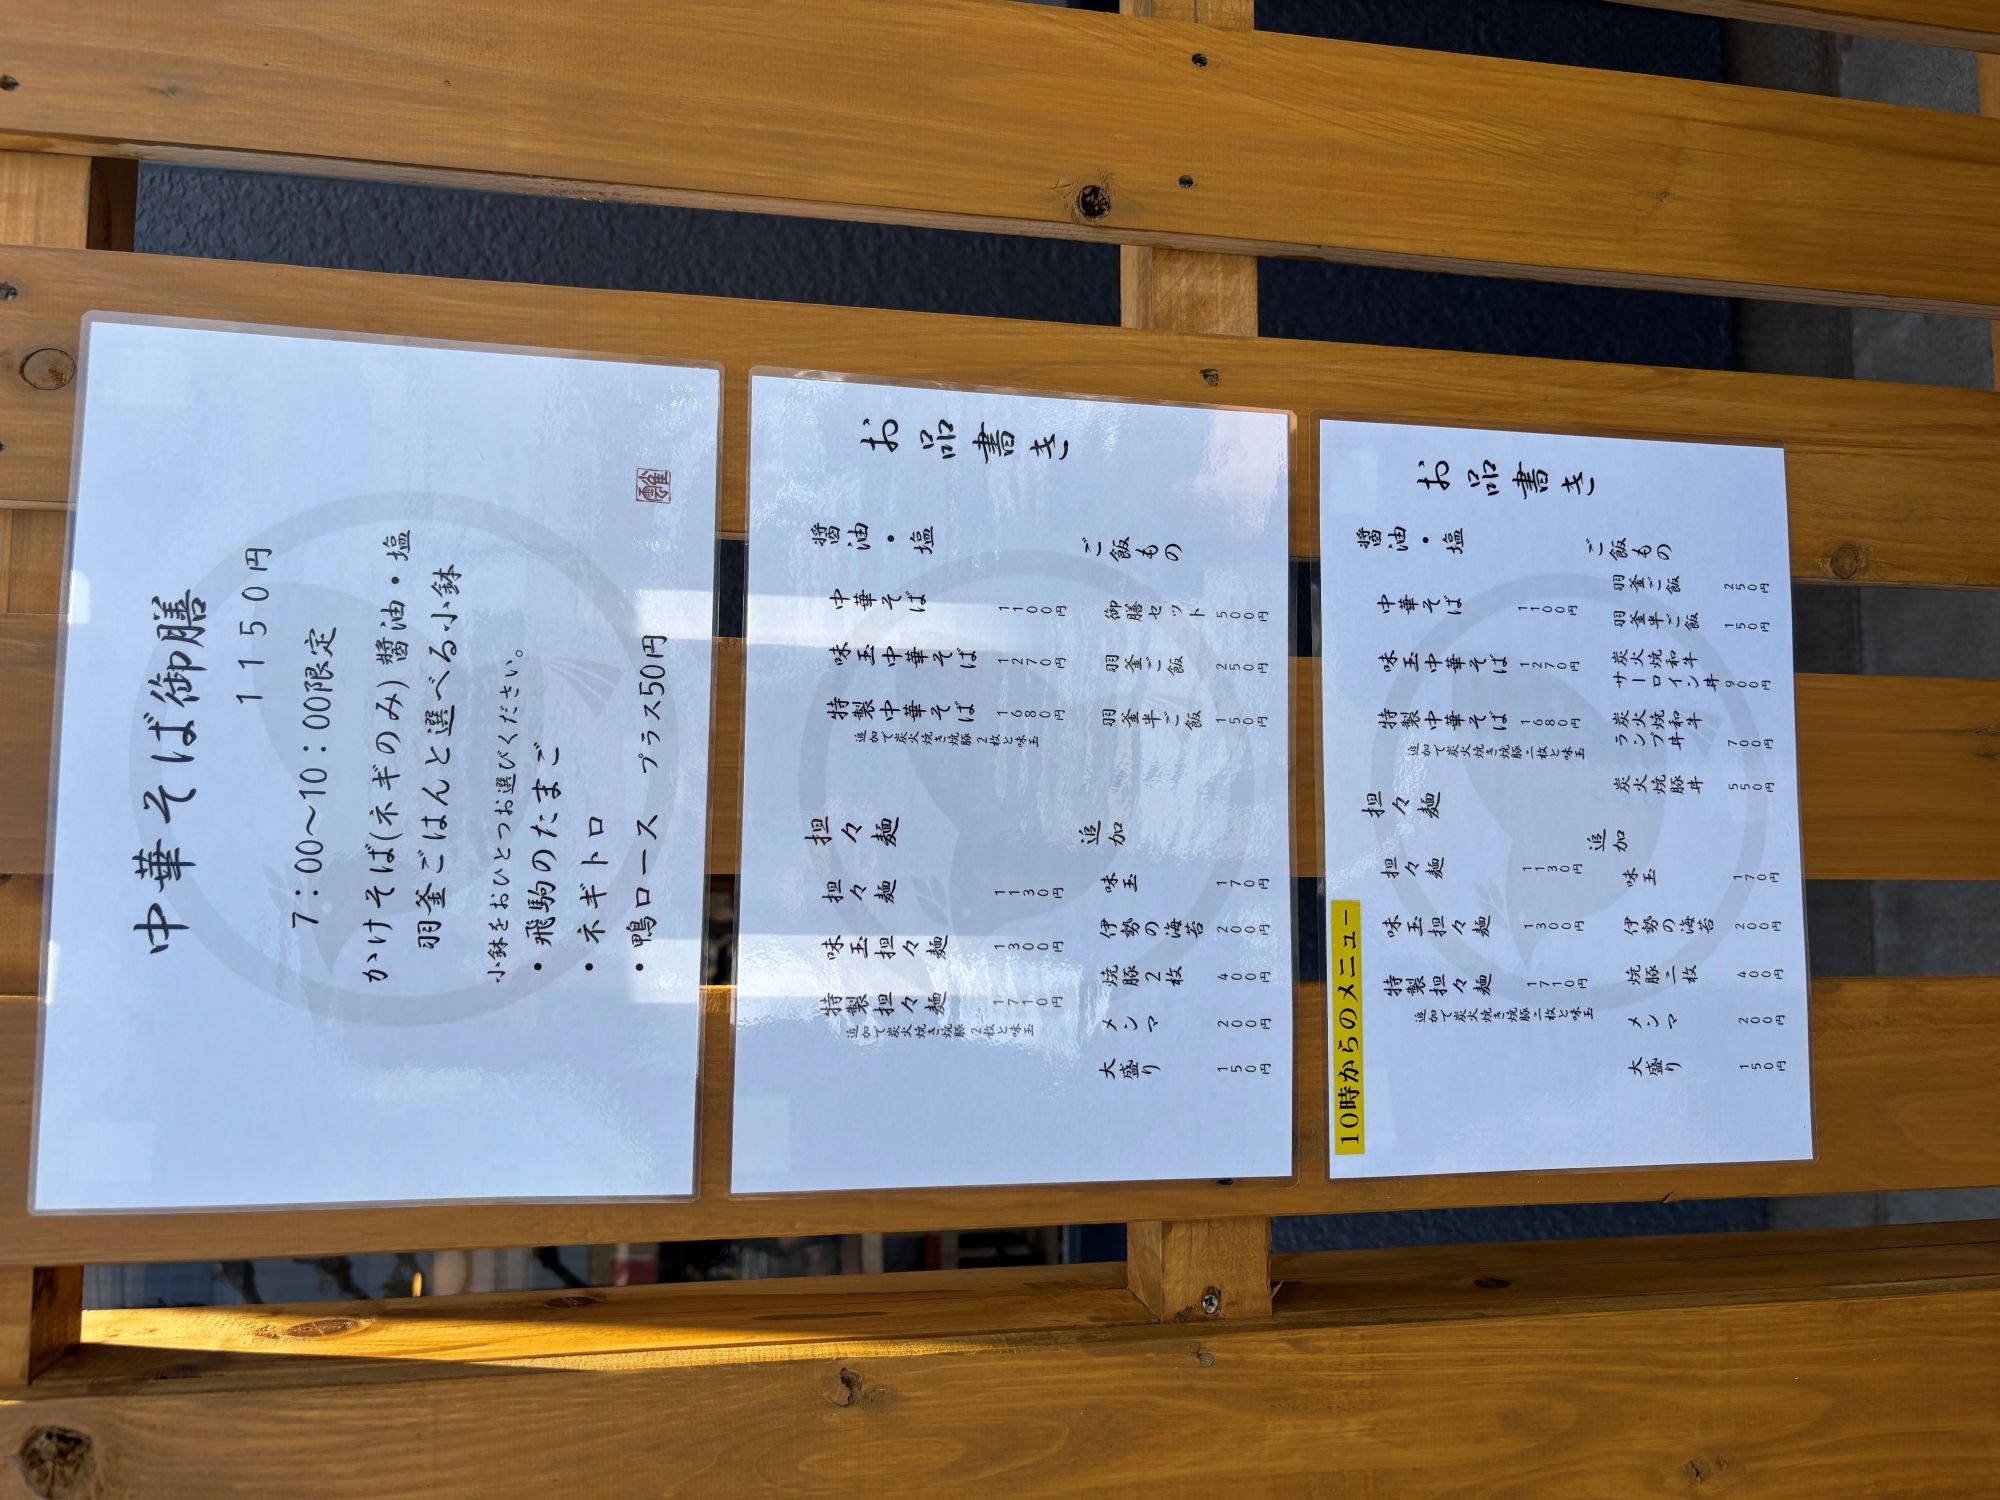 中華そば御膳
1150円
7:00〜10:00限定
かけそば(ネギのみ)醤油・塩
羽釜ごはんと選べる小鉢
小鉢をおひとつお選びください。
・飛駒のたまご
・ネギトロ
・鴨ロース プラス50円
お品書き
醤油・塩
中華そば 1100円
味玉中華そば 1270円
特製中華そば 1680円
追加で炭火焼き焼豚2枚と味玉
担々麺
担々麺 1130円
味玉担々麺 1300円
特製担々麺 1710円
追加で炭火焼き焼豚2枚と味玉
ご飯もの
御膳セット 500円
羽釜ご飯 250円
羽釜半ご飯 150円
追加
味玉 170円
伊勢の海苔 200円
焼豚2枚 400円
メンマ 200円
大盛り 150円
10時からのメニュー
お品書き
醤油・塩
中華そば 1100円
味玉中華そば 1270円
特製中華そば 1680円
追加で炭火焼き焼豚二枚と味玉
担々麺
担々麺 1130円
味玉担々麺 1300円
特製担々麺 1710円
追加で炭火焼き焼豚二枚と味玉
ご飯もの
羽釜ご飯 250円
羽釜半ご飯 150円
炭火焼和牛
サーロイン丼 900円
炭火焼和牛
ランプ丼 700円
炭火焼豚丼 550円
追加
味玉 170円
伊勢の海苔 200円
焼豚二枚 400円
メンマ 200円
大盛り 150円